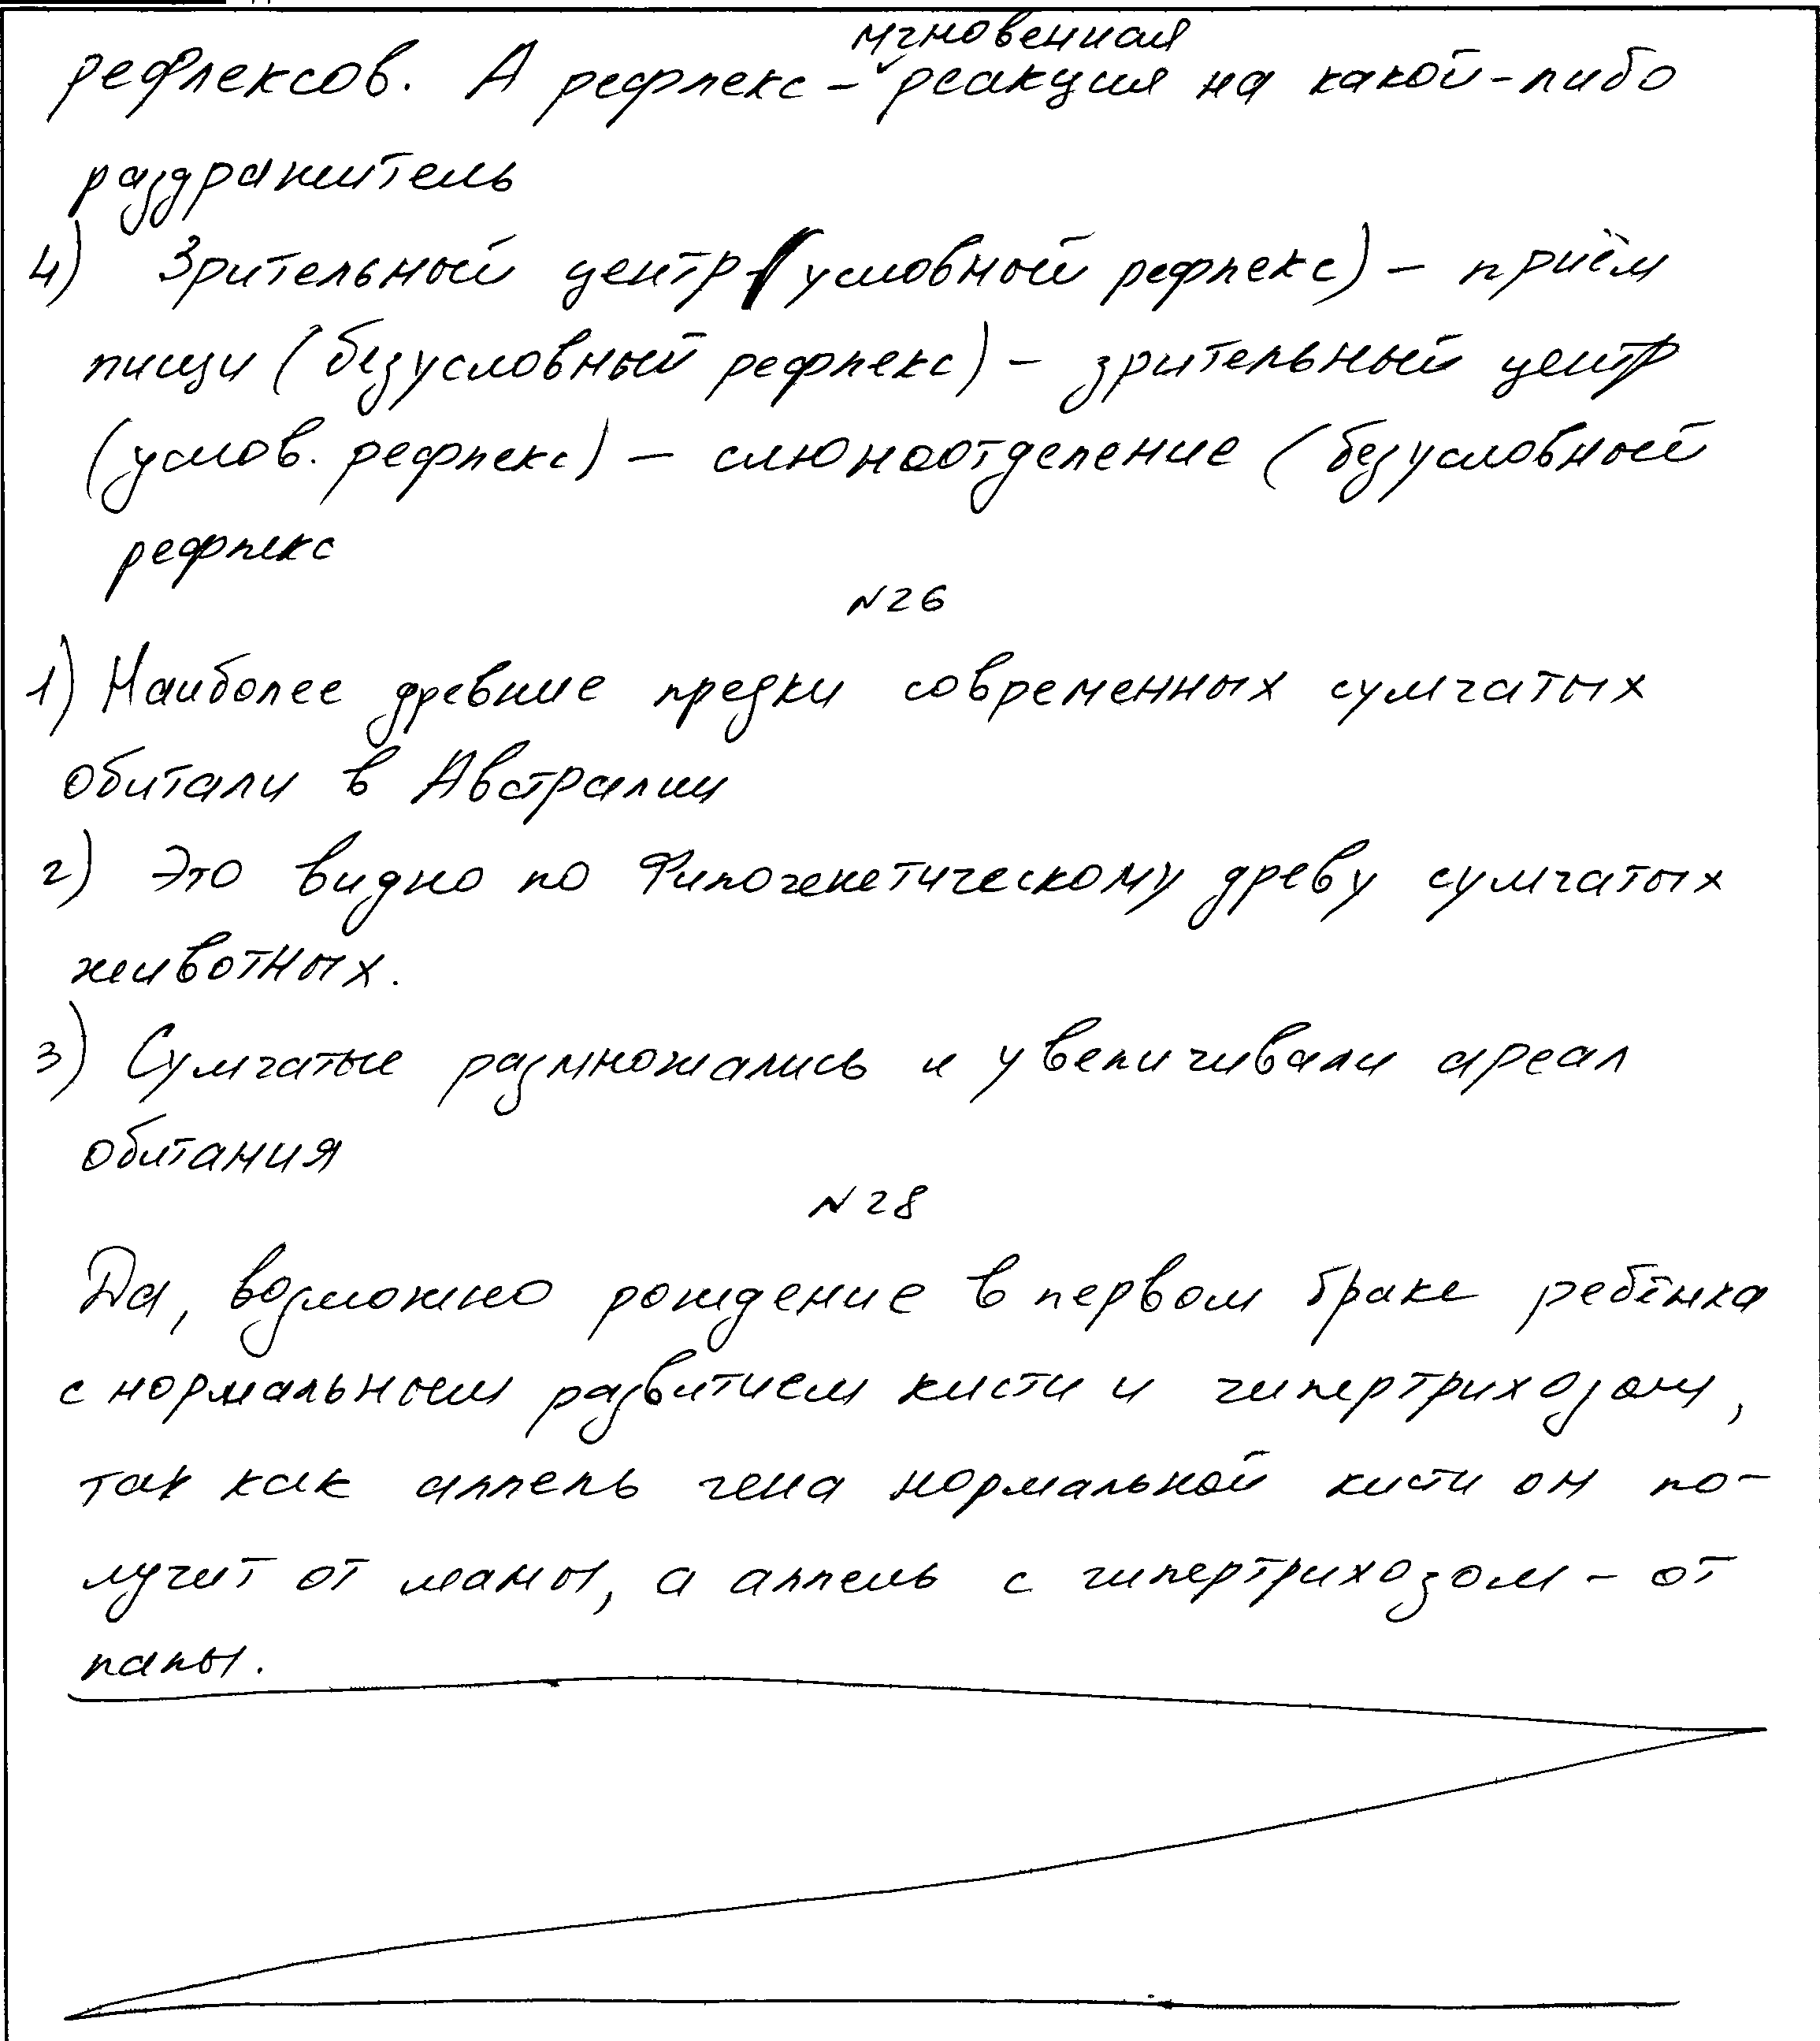 мгновенная
рефлексов. А рефлекс - реакция на какой-либо
раздражитель
4) Зрительный центр (условный рефлекс) - приём
пищи (безусловный рефлекс) - зрительный центр
(услов. рефлекс) - слюноотделение (безусловный
рефлекс
№26
1) Наиболее древние предки современных сумчатых
обитали в Австралии
2) Это видно по Филогенетическому древу сумчатых
животных.
3) Сумчатые размножались и увеличивали ареал
обитания
№28
Да, возможно рождение в первом браке ребёнка
с нормальным развитием кисти и гипертрихозом,
так как аллель гена нормальной кисти он по-
лучит от мамы, а аллель с гипертрихозом - от
папы.